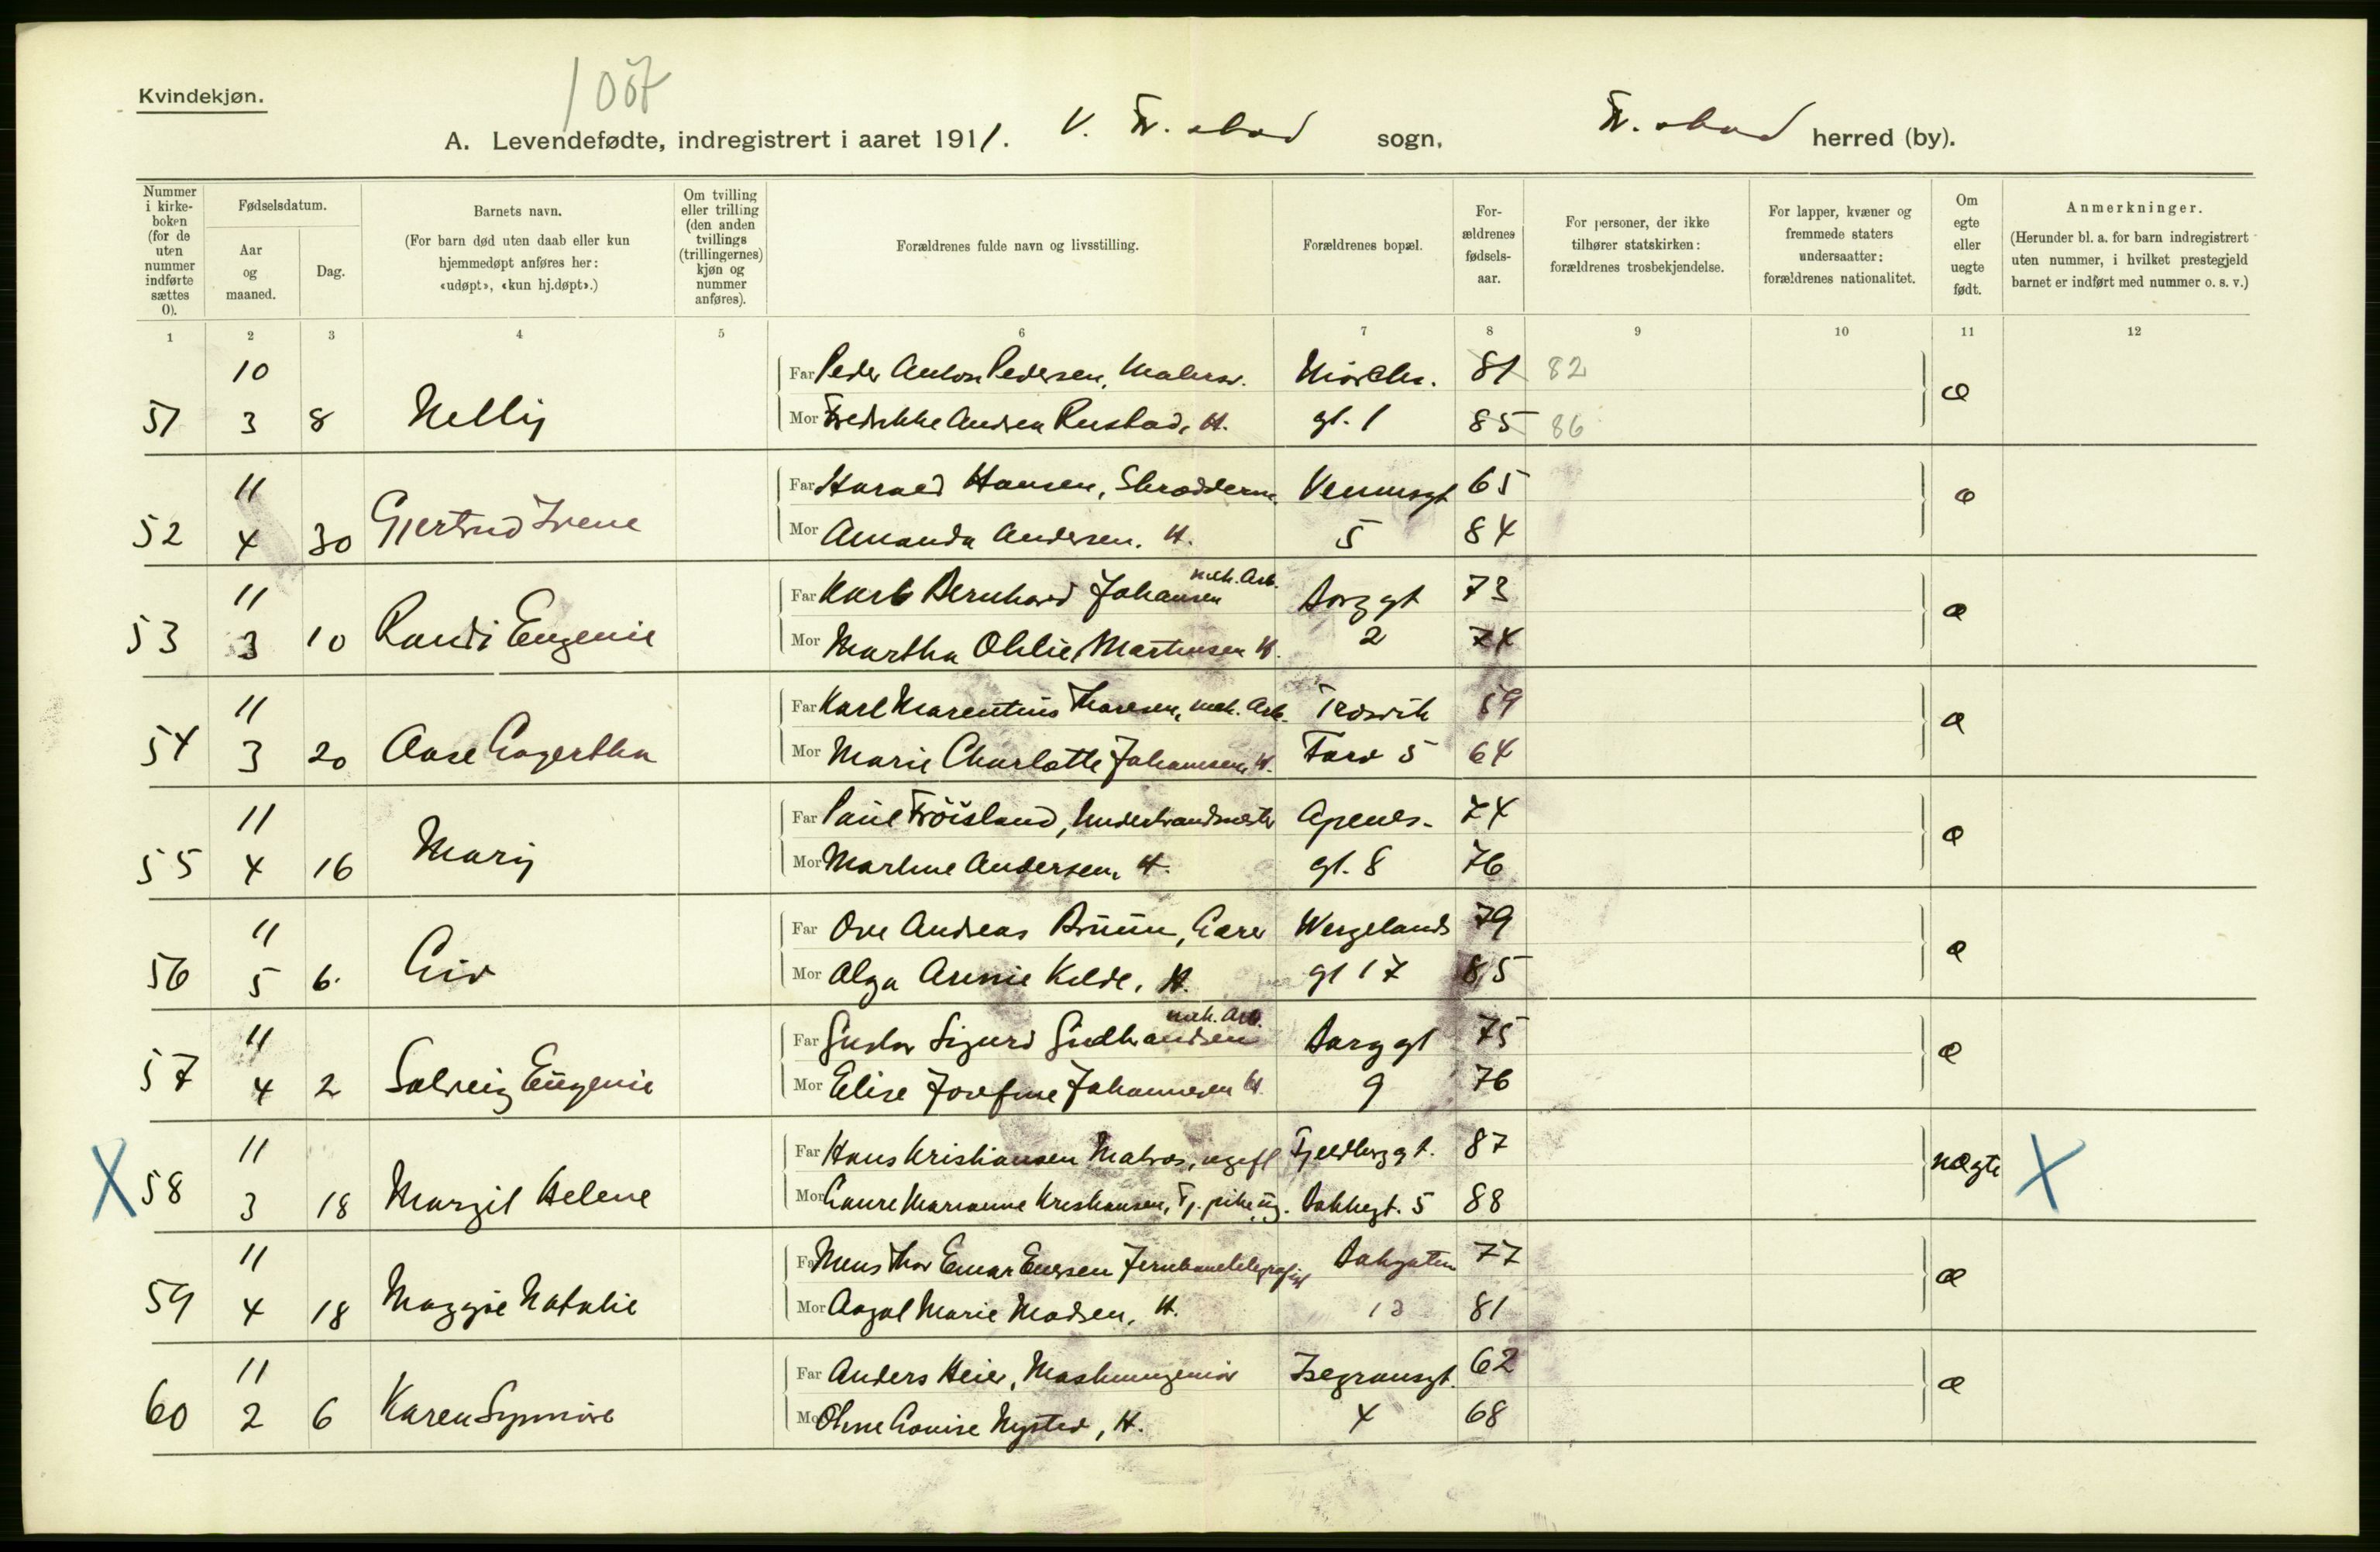 Kvindekjøn.
1007
A. Levendefødte, indregistrert i aaret 1911. V. Fr.stad sogn, Fr.stad herred (by).
Nummer i kirkeboken (for de uten nummer indførte sættes 0).
Fødselsdatum.
Aar og maaned.
Dag.
Barnets navn.
(For barn død uten daab eller kun hjemmedøpt anføres her: «udøpt», «kun hj.døpt».)
Om tvilling eller trilling (den anden tvillings (trillingernes) kjøn og nummer anføres).
Forældrenes fulde navn og livsstilling.
Forældrenes bopæl.
Forældrenes fødselsaar.
For personer, der ikke tilhører statskirken: forældrenes trosbekjendelse.
For lapper, kvæner og fremmede staters undersaatter: forældrenes nationalitet.
Om egte eller uegte født.
Anmerkninger.
(Herunder bl. a. for barn indregistrert uten nummer, i hvilket prestegjeld barnet er indført med nummer o. s. v.)
1 2 3 4 5 6 7 8 9 10 11 12
10 Far Peder Anton Pedersen, Matros. 81 82
51 3 8 Nelly Mor Fredrikke Andrea Rustad, H. gt. 1 85 86 æ
11 Far Harald Hansen, Skrædderm. Venusgt 65
52 4 30 Gjertrud Irene Mor Amanda Andersen. H. 5 84 æ
11 Far Karl Bernhard Johansen mek. Arb. Borggt 73
53 3 10 Randi Eugenie Mor Martha Otilie Martinsen H. 2 74 æ
11 Far Karl Marentius Thoresen, mek. Arb. Trosvik 59
54 3 20 Aase Lagertha Mor Marie Charlotte Johansen, H. Torv 5 64 æ
11 Far Paul Fröisland, Underbrandmester Apenes- 74
55 4 16 Mary Mor Martine Andersen, H. gt. 8 76 æ
11 Far Ove Andreas Bruun, Lærer Wergelands 79
56 5 6. Liv Mor Olga Annie Kilde, H. gt 17 85 æ
11 Far Gustav Sigurd Gudbrandsen mek. Arb. Borggt 75
57 4 2 Solveig Eugenie Mor Elise Josefine Johannesen H. 9 76 æ
11 Far Hans Kristiansen Matros, ugift Fjeldberggt. 87
X 58 3 18 Margit Helene Mor Laure Marianne Kristiansen, Tj.pike, ug. Bakkegt. 5 88 uægte X
11 Far Mens Thor Einar Enersen Jernbanetelegrafist 77
59 4 18 Maggie Natalie Mor Aagot Marie Madsen, H. 81 æ
11 Far Anders Heier, Maskiningeniør Isegransgt. 62
60 2 6 Karen Synnöve Mor Oline Louise Nysted, H. 4 68 æ